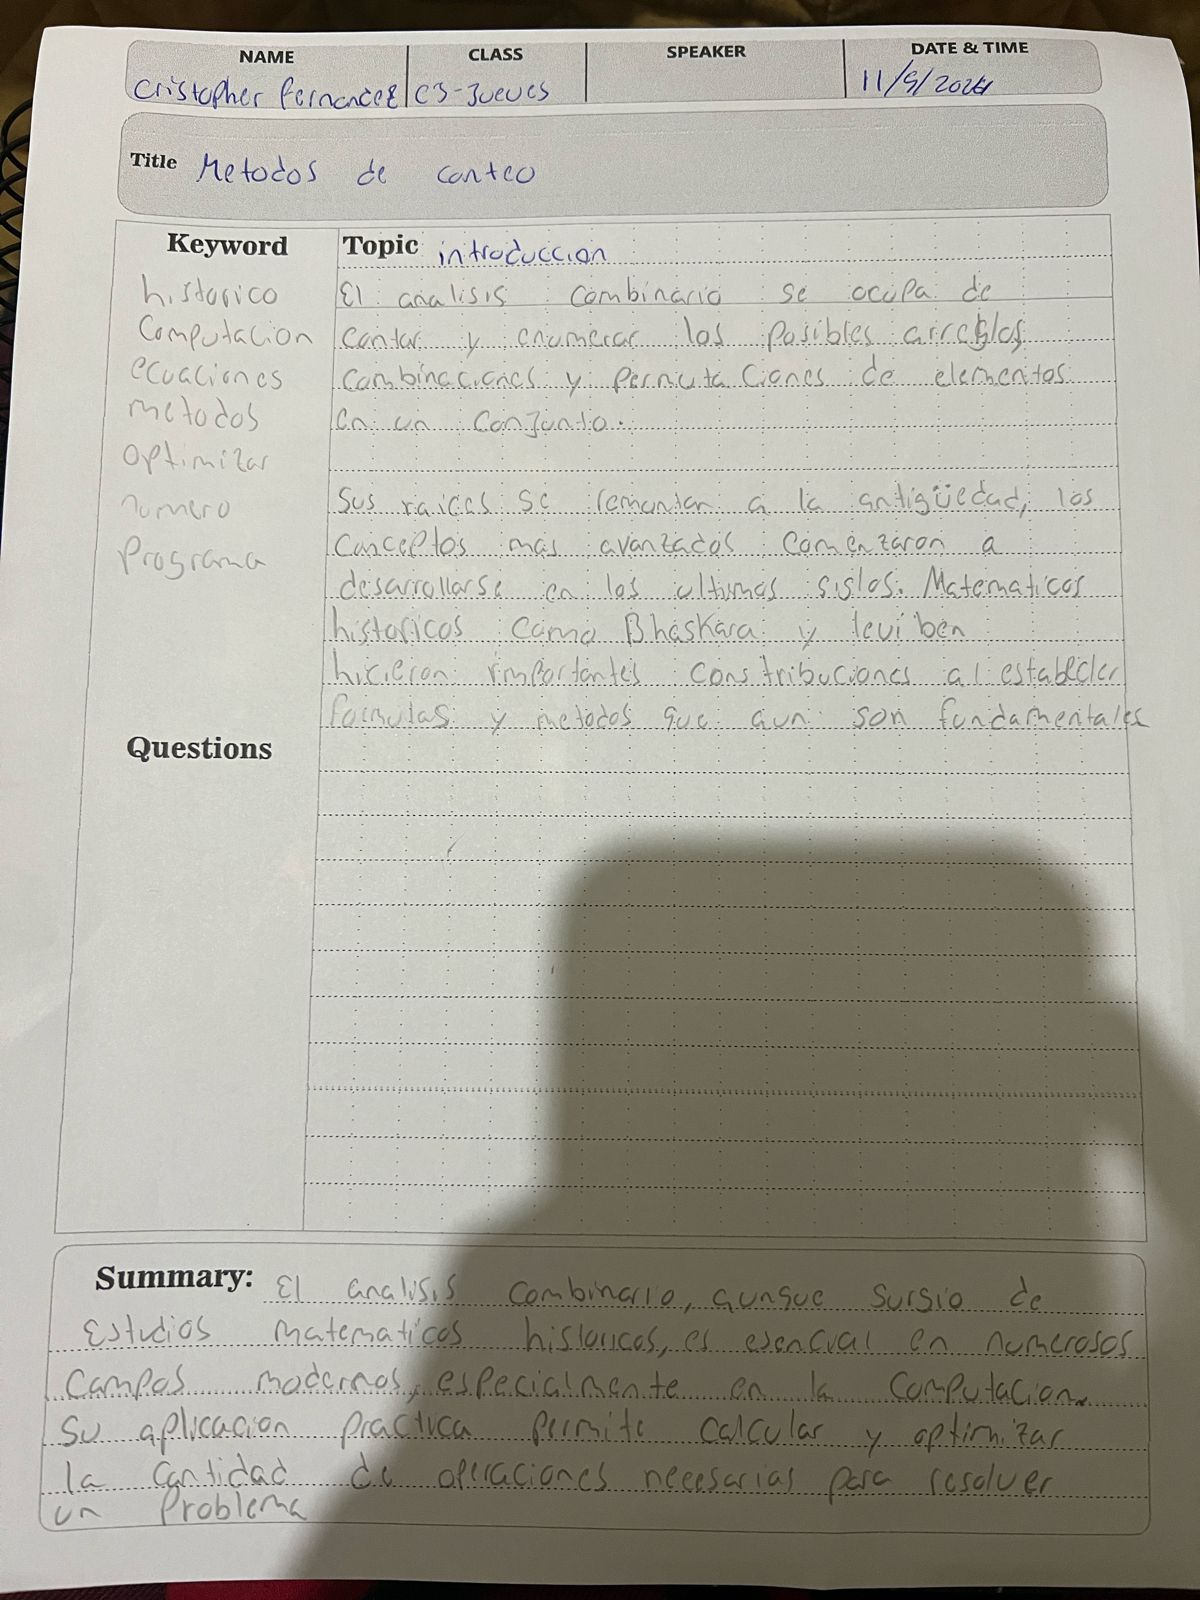 NAME CLASS SPEAKER DATE & TIME
Cristopher Fernandez C3-Jueves 11/9/2024
Title Metodos de conteo
Keyword
historico
Computacion
ecuaciones
metodos
optimizar
numero
Programa
Topic introduccion
El analisis combinario se ocupa de
contar y enumerar los posibles arreglos,
combinaciones y permutaciones de elementos
en un conjunto.
Sus raices se remontan a la antigüedad, los
conceptos mas avanzados comenzaron a
desarrollarse en los ultimos siglos. Matematicos
historicos como Bhaskara y levi ben
hicieron importantes constribuciones al establecer
formulas y metodos que aun son fundamentales
Questions
Summary: El analisis combinario, aunque surgio de
Estudios matematicos historicos, es esencial en numerosos
campos modernos, especialmente en la computacion.
Su aplicacion practica permite calcular y optimizar
la cantidad de operaciones necesarias para resolver
un problema